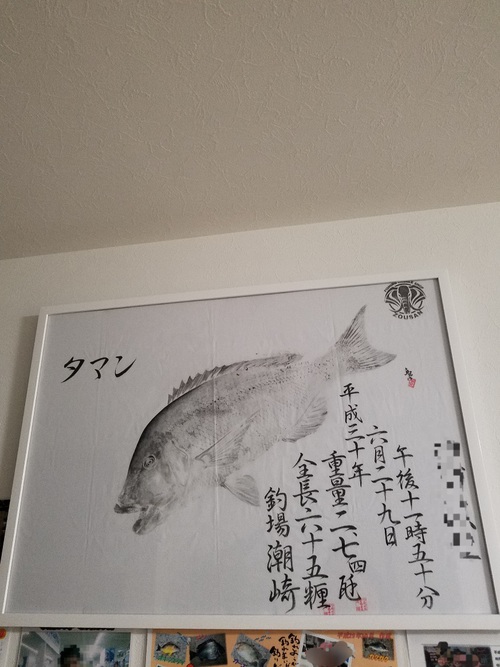 タマン
ZOUSAN
午後十一時五十分
六月二十九日
平成三十年
重量二、七四瓩
全長六十五糎
釣場 潮崎